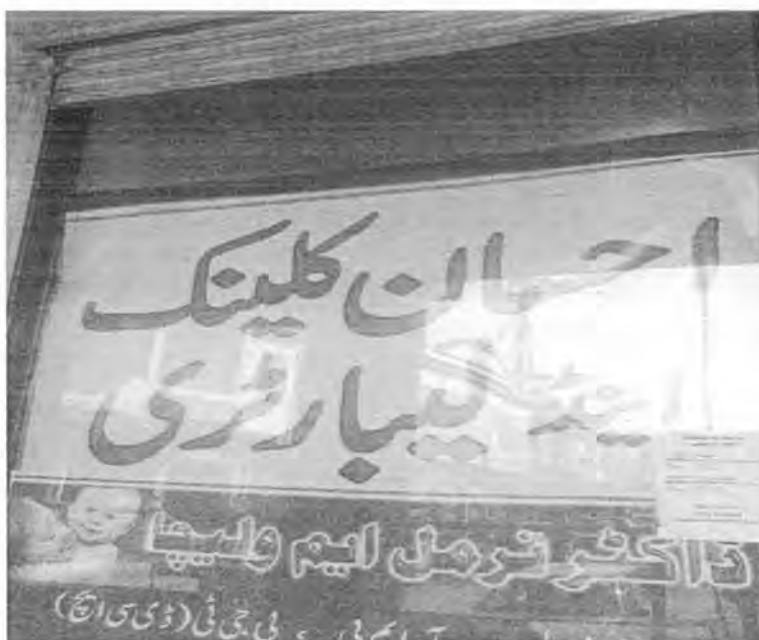 احسان کلینک
اینڈ لیبارٹری
ڈاکٹر نرمل ایم ولیچا
آر ایم پی، پی جی ٹی (ڈی سی ایچ)